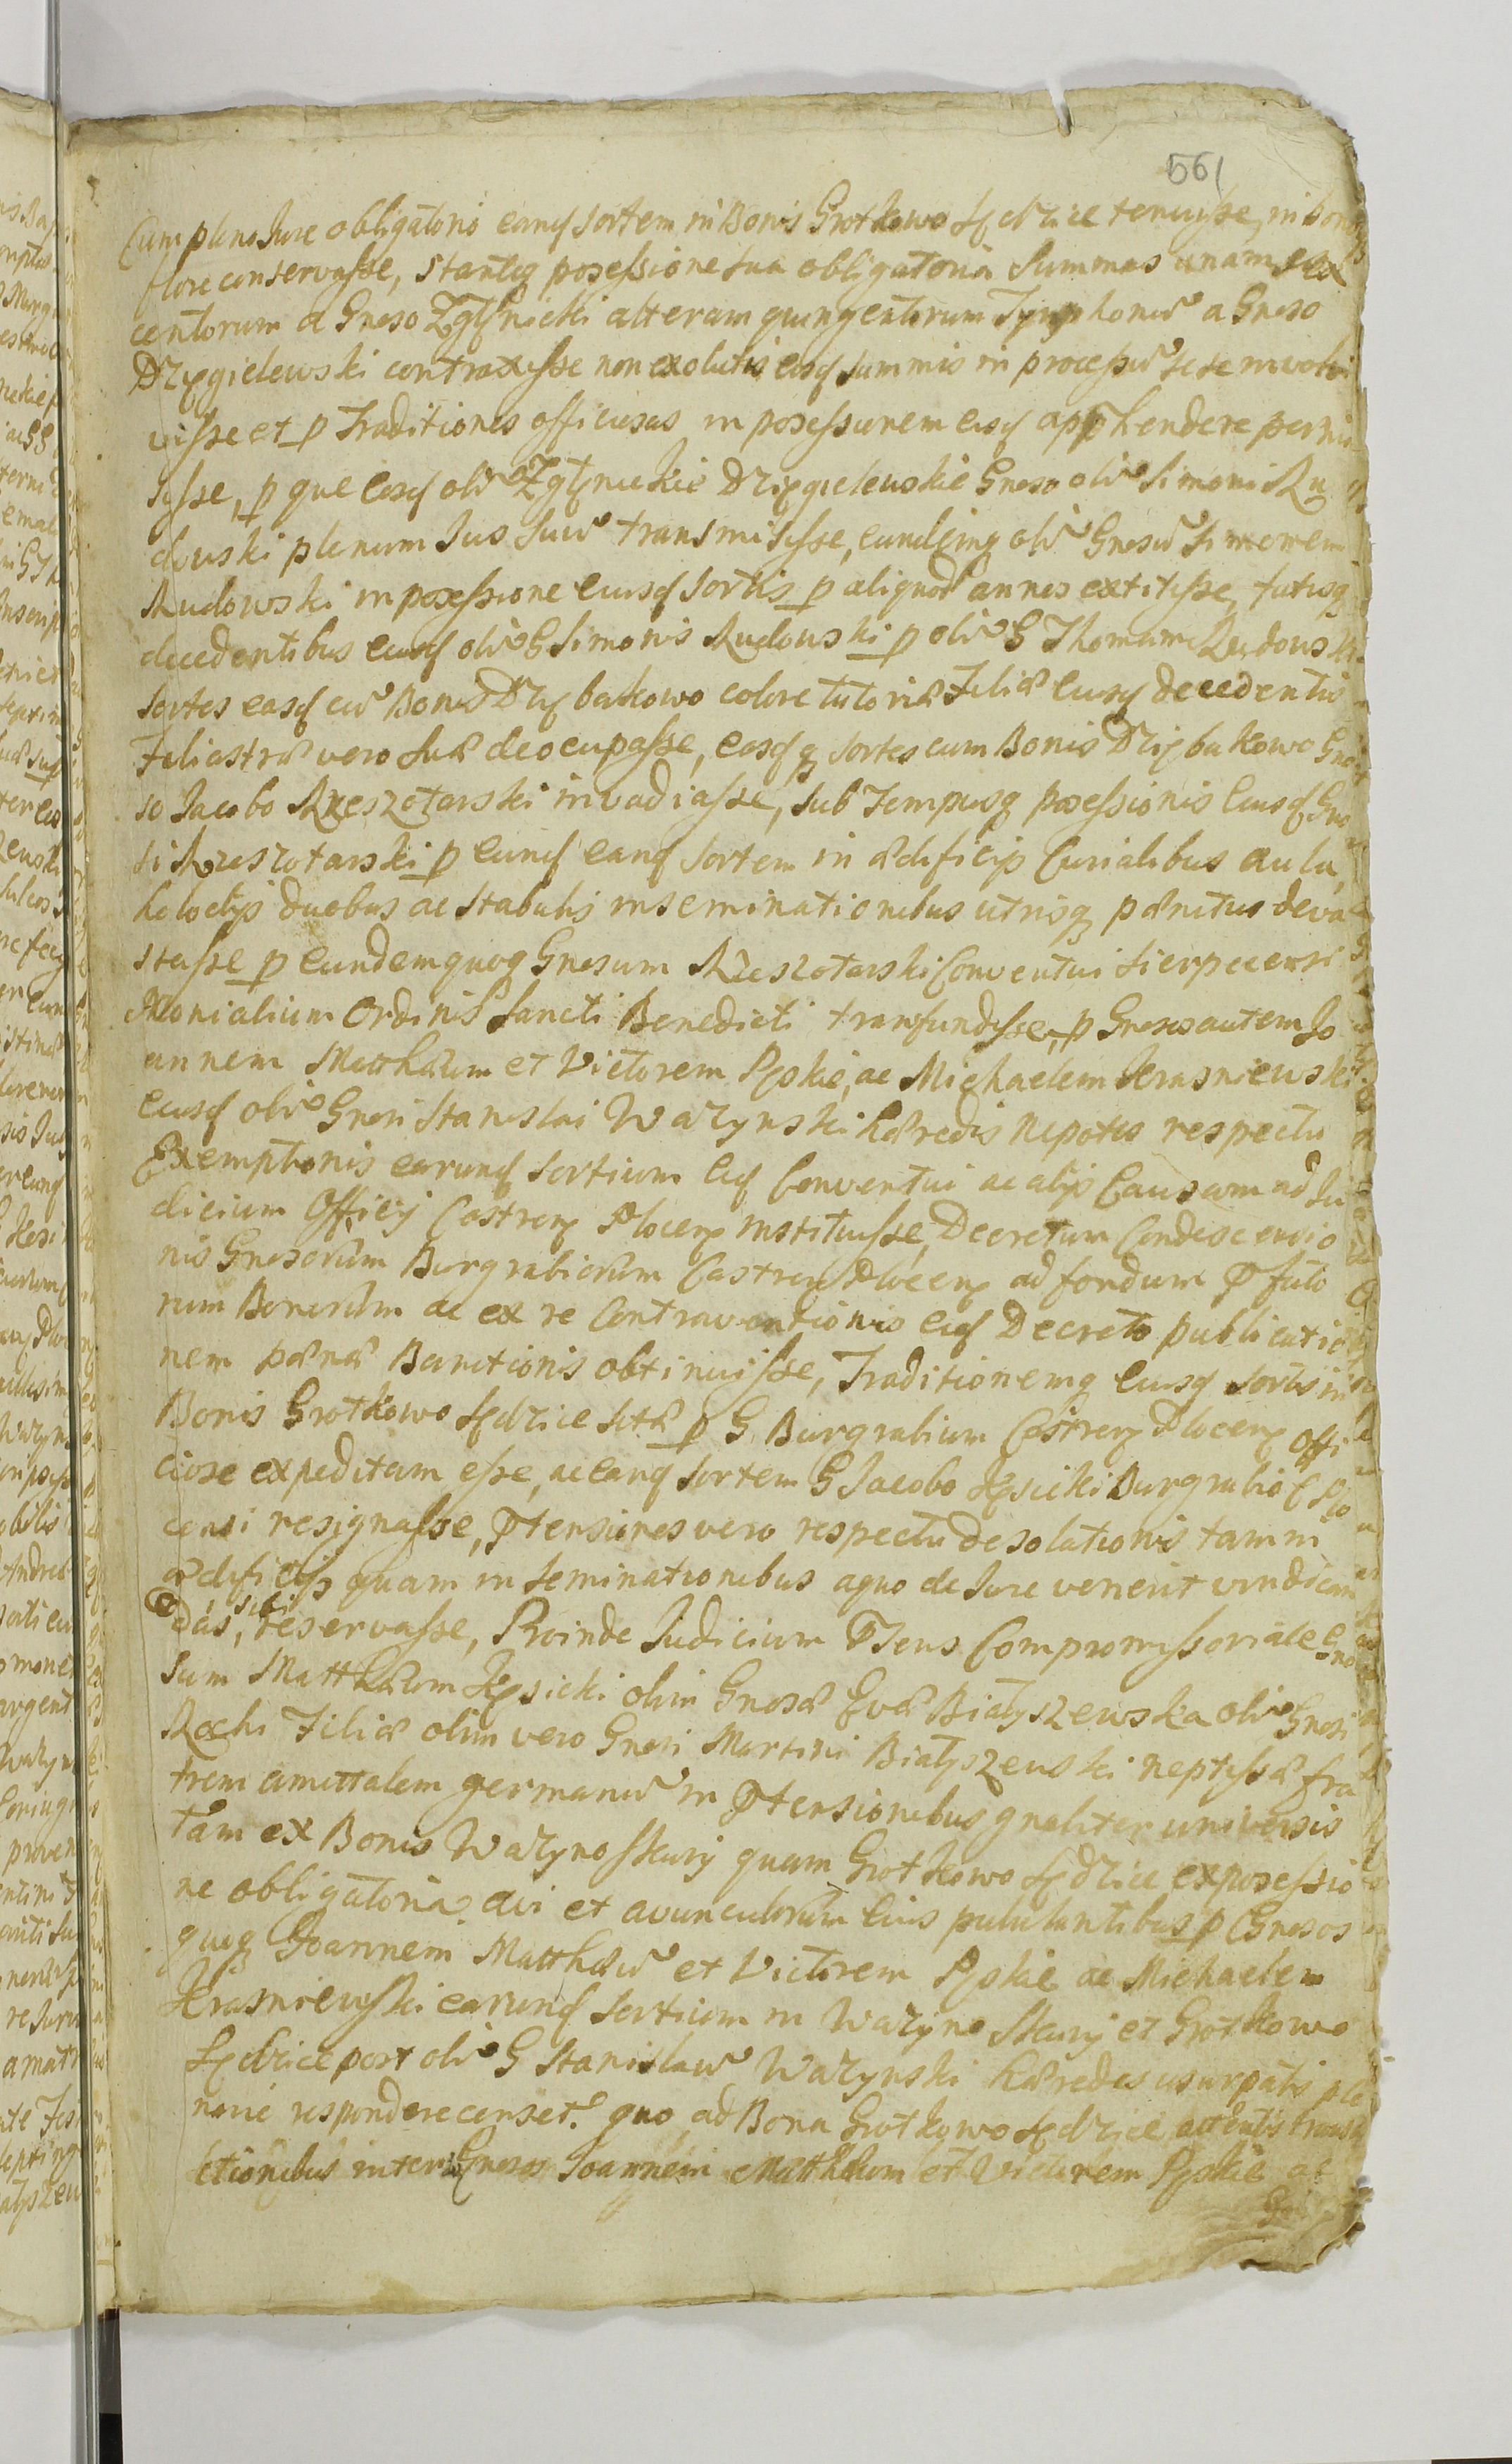 561
Cum pleno Jure obligatorio eanq sortem in Bonis Grotkowo Sędzice tenuisse, in bono
flore conservasse, stanteq possessione sua obligatoria Summas unam sex
centorum a Gnoso Zglynicki alteram quingentorum Tynphonu a Gnoso
Drzęgielewski contraxisse non exolutis eisq summis in processu sese involvi
visse et p Traditiones officiosas in posessionem eiusq apphendere permi
sisse, p que eosq oli Zglynickie Dzięgielewskie Gnoso oli Simoni Ru
dowski plenum Jus suu transmisisse, eundemq oli Gnosu Simonem
Rudowski in posessione eiusq sortis p aliquot annos extitisse, fatisq
decedentibus eiusq oli G Simonis Rudowski p oli G Thomam Rudowski
sortes easq cu Bonis Drzybakowo colore tutoriæ Filiæ eiusq decedentis
Filiastræ vero suæ deocupasse, easq q sortes cum Bonis Drzybakowo Gno
so Jacobo Rzeszotarski invadiasse, sub Tempusq posessionis eiusq Gno
si Rzeszotarski p eunq eanq sortem in ædificijs Curialibus aula,
koloctijs duobus ac stabulis inseminationibus utrisq pænitus deva
stasse p eundem quoq Gnosum Rzeszotarski Conventui Sierpecensi
Monialium Ordinis Sancti Benedicti transfundisse, p Gnosos autem Jo
annem Matthæum et Victorem Pyskie, ac Michaelem Krasniewski
eiusq oli Gnosi Stanislai Wazynski hæredis Nepotes respectu
Exemptionis earunq sortium eiq Conventui ac alijs Causam ad Ju
dicium Officij Castren Plocen instituisse, Decretum Condescensio
nis Gnosorum Burgrabiorum Castren Plocen ad fondum Pfato
rum Bonorum ac ex re Contraventionis eiq Decreto publicatio
nem pænæ Bannitionis obtinuisse, Traditionemq eiusq sortis in
Bonis Grotkowo Sędzice sitæ p G Burgrabium Castren Plocen Offi
ciose expeditam esse, ac eanq sortem G Jacobo Kęsicki Burgrabio C Plo
censi resignasse, Ptensiones vero respectu desolationis tam in
ædificijs quam inseminationibus a quo de Jure venerit vindican
das, sibi reservasse, Proinde Judicium Psens Compromissoriale Gno
sum Matthæum Kęsicki olim Gnosæ Evæ Bialyszewska oli Gnosi
Rochi Filiæ olim vero Gnosi Martini Bialyszewski neptissæ fra
trem amittalem germanu in Ptensionibus gnaliter universis
tam ex Bonis Wazyno Skury quam Grotkowo Sędzice ex posessio
ne obligatoria avi et avunculorum eius pululantibus p Gnosos
quoq Joannem Matthæu et Victorem Pyskie ac Michaelem
Krasniewski earunq sortium in Wazyno Skury et Grotkowo
Sędzice post oli G Stanislau Wazynski hæredes usurpatis ple
narie respondere censet. quo ad Bona Grotkowo Sędzice attentis transa
ctionibus inter Gnosos Joannem Matthæum et Victorem Pyskie ac